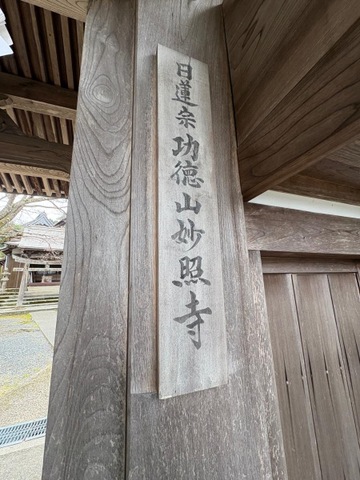 日蓮宗功德山妙照寺